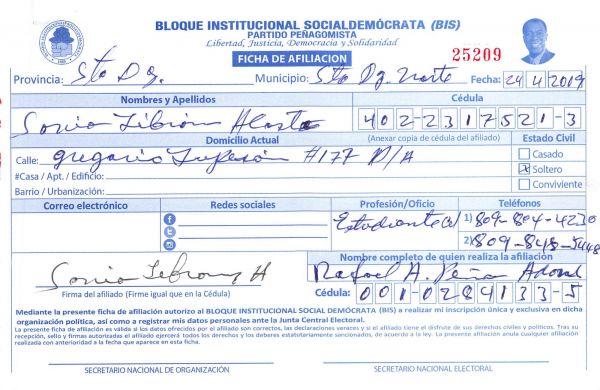 BLOQUE INSTITUCIONAL SOCIALDEMÓCRATA (BIS)
PARTIDO PEÑAGOMISTA
Libertad, Justicia, Democracia y Solidaridad
FICHA DE AFILIACION 25209
Provincia: Sto Dgo. Municipio: Sto Dgo. Norte Fecha: 24/4/2019
Nombres y Apellidos Cédula
Sonia Librón Acosta 402-2317521-3
Domicilio Actual (Anexar copia de cédula del afiliado) Estado Civil
Calle: Gregorio #177 P/A Casado
#Casa / Apt. / Edificio: x Soltero
Barrio / Urbanización: Conviviente
Correo electrónico Redes sociales Profesión/Oficio Teléfonos
Estudiante 1) 809-804-4230
2) 809-848-5448
Nombre completo de quien realiza la afiliación
Sonia Librón A Rafael A. Peña
Firma del afiliado (Firme igual que en la Cédula) Cédula: 001-0284133-5
Mediante la presente ficha de afiliación autorizo al BLOQUE INSTITUCIONAL SOCIAL DEMÓCRATA (BIS) a realizar mi inscripción única y exclusiva en dicha
organización política, así como a registrar mis datos personales ante la Junta Central Electoral.
La presente ficha de afiliación es válida si los datos ofrecidos por el afiliado son correctos, las declaraciones veraces y si el afiliado tiene el disfrute de sus derechos civiles y políticos. Tras su
recepción, sello y firmas autorizadas el afiliado ejercerá todos los derechos y los deberes estatutariamente sancionados, de acuerdo a la ley. La presente afiliación anula cualquier afiliación
realizada con anterioridad a la fecha que aparece en ella.
SECRETARIO NACIONAL DE ORGANIZACIÓN SECRETARIO NACIONAL ELECTORAL